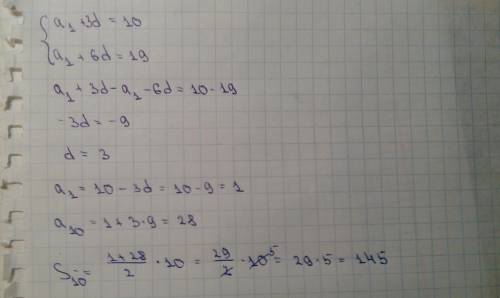 { a₁ + 3d = 10
a₁ + 6d = 19
a₁ + 3d - a₁ - 6d = 10 - 19
-3d = -9
d = 3
a₁ = 10 - 3d = 10 - 9 = 1
a₁₀ = 1 + 3·9 = 28
S₁₀ = (1+28)/2 · 10 = 29/2 · 10⁵ = 29·5 = 145